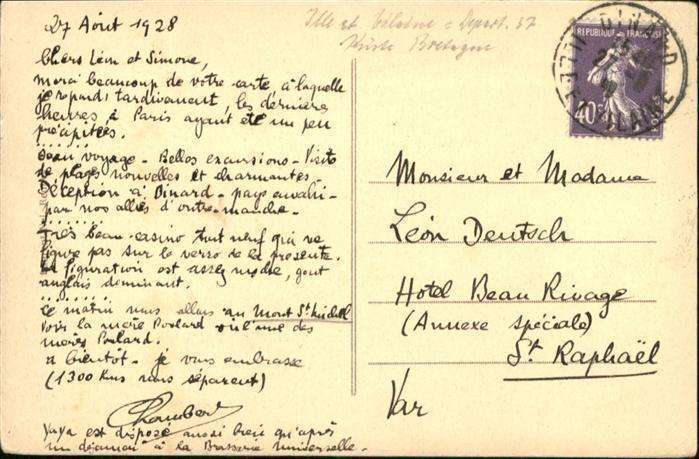 27 Août 1928
Ille et Vilaine = Départ. 37
Bretagne
Chers Léon et Simone,
merci beaucoup de votre carte, à laquelle
je réponds tardivement, les dernières
heures à Paris ayant été un peu
précipitées.
Beau voyage - Belles excursions - Visite
de plages nouvelles et charmantes -
Déception à Dinard - pays envahi
par nos alliés d'outre-manche -
Très beau casino tout neuf qui ne
figure pas sur le verso de la présente.
La figuration est assez moche, gout
anglais dominant.
Ce matin nous allons au Mont St Michel
voir la mère Poulard ou l'une des
mères Poulard.
a bientôt - je vous embrasse
(1300 Kms nous séparent)
Yaya est disposé aussi bien qu'après
un déjeuner à la Brasserie Universelle -
REPUBLIQUE FRANÇAISE
40c
DINARD
ILLE-ET-VILAINE
Monsieur et Madame
Léon Deutsch
Hotel Beau Rivage
(Annexe spéciale)
St Raphaël
Var